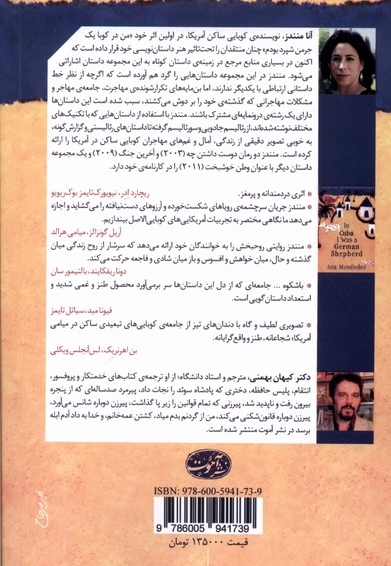 آنا منندز، نویسنده‌ی کوبایی ساکن آمریکا، در اولین اثر خود «من در کوبا یک
جرمن شپرد بودم» چنان منتقدان را تحت‌تاثیر هنر داستان‌نویسی خود قرار داده است که
اکنون در بسیاری منابع مرجع در زمینه‌ی داستان کوتاه به این مجموعه داستان اشاراتی
می‌شود. منندز در این مجموعه داستان‌هایی را گرد هم آورده است که اگرچه از نظر خط
داستانی ارتباطی با یکدیگر ندارند، اما بن‌مایه‌های تکرارشونده‌ی مهاجرت، جامعه‌ی مهاجر و
مشکلات مهاجرانی که گذشته‌ی خود را بر دوش می‌کشند، سبب شده است این داستان‌ها
دارای یک رشته‌ی درونمایه‌ای مشترک باشند. منندز با استفاده از داستان‌هایی که با تکنیک‌های
مختلف نوشته شده‌اند، از رئالیسم جادویی و سوررئالیسم گرفته تا داستان‌های رئالیستی و گزارش‌گونه،
به خوبی تصویر دقیقی از زندگی، آمال و غم‌های مهاجران کوبایی ساکن در آمریکا را ارائه
کرده است. منندز دو رمان دوست داشتن چه (۲۰۰۳) و آخرین جنگ (۲۰۰۹) و یک مجموعه
داستان دیگر با عنوان وطن خوشبخت (۲۰۱۱) را در کارنامه‌ی خود دارد.
اثری دردمندانه و پرمغز.
ریچارد ادر، نیویورک‌تایمز بوک‌ریویو
منندز جریان سرچشمه‌ی رویاهای شکست‌خورده و آرزوهای دست‌نیافته را می‌گشاید و اجازه
می‌دهد ما نگاهی مختصر به تجربیات آمریکایی‌های کوبایی‌الاصل بیندازیم.
آریل گونزالز، میامی هرالد
منندز روایتی روح‌بخش را به خوانندگان خود ارائه می‌دهد که سرشار از روح زندگی میان
گذشته و حال، میان خواهش و افسوس و باز میان شادی و فاجعه حرکت می‌کند.
دونا ریفکایند، بالتیمور سان
باشکوه ... جامعه‌ای که از دل این داستان‌ها سر برمی‌آورد محصول طنز و غمی شدید و
استعداد داستان‌گویی است.
فیونا مید، سیاتل تایمز
تصویری لطیف و گاه با دندان‌های تیز از جامعه‌ی کوبایی‌های تبعیدی ساکن در میامی
آمریکا؛ شجاعانه، طنز و واقع‌گرایانه.
بن اهرنریک، لس‌آنجلس ویکلی
In Cuba
I Was a
German
Shepherd
Ana Menéndez
دکتر کیهان بهمنی، مترجم و استاد دانشگاه؛ از او ترجمه‌ی کتاب‌های خدمتکار و پروفسور،
انتقام، پلیس حافظه، دختری که پادشاه سوئد را نجات داد، پیرمرد صدساله‌ای که از پنجره
بیرون رفت و ناپدید شد، پیرزنی که تمام قوانین را زیر پا گذاشت، پیرزن دوباره شانس می‌آورد،
پیرزن دوباره قانون‌شکنی می‌کند، من از گردنم بدم میاد، کشتن عمه‌خانم، و خدا به داد آدم ابله
برسد در نشر آموت منتشر شده است.
نشر آموت
ISBN: 978-600-5941-73-9
9 786005 941739
قیمت ۱۳۵۰۰۰ تومان